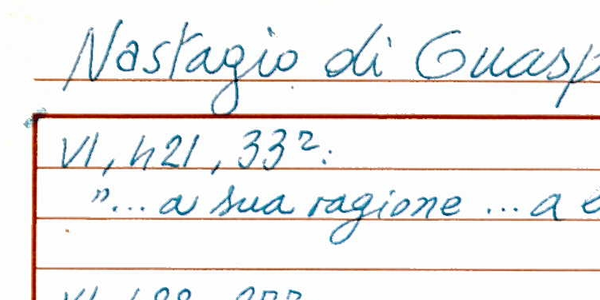 Nastagio di Guasp
VI, 421, 33²:
"... a sua ragione ... a
VI,